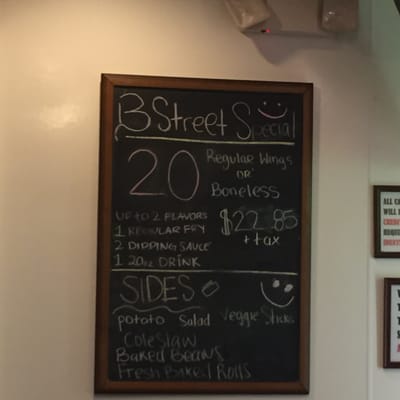 B Street Special
20 Regular Wings
or
Boneless
up to 2 Flavors
1 Regular Fry
2 Dipping Sauce
1 20oz Drink
$22.85
+ tax
SIDES
potato Salad
Veggie Sticks
Coleslaw
Baked Beans
Fresh Baked Rolls
ALL C
WILL